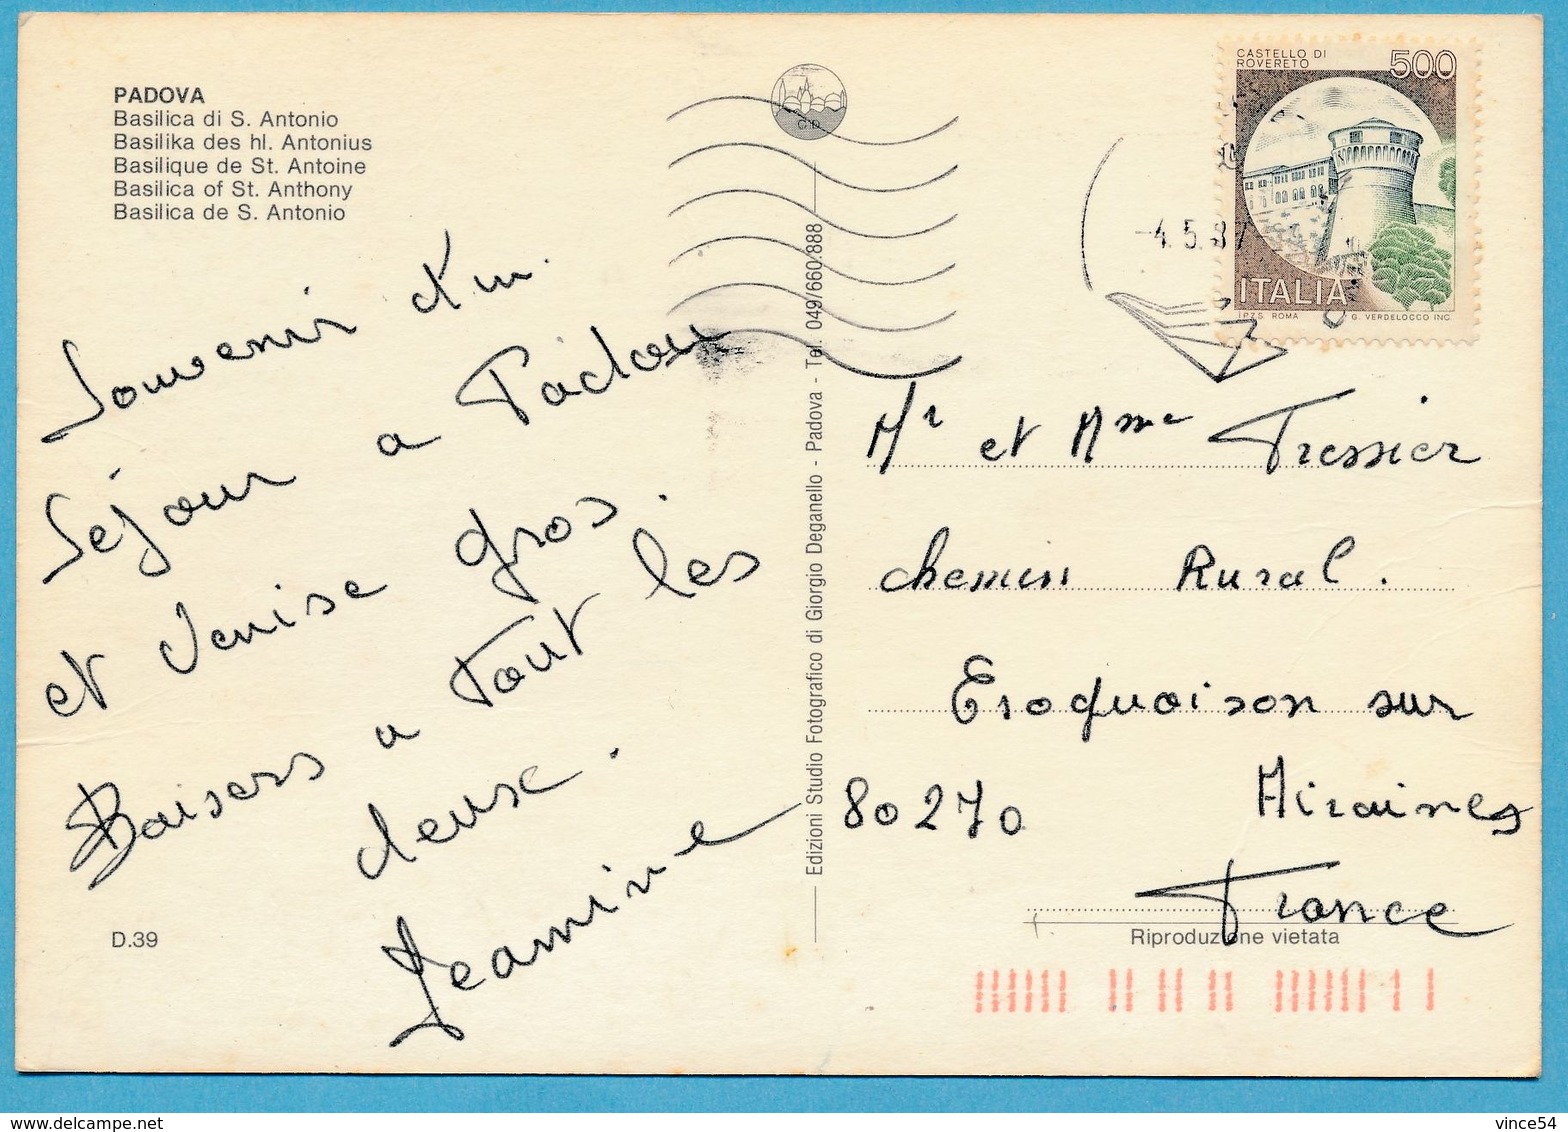 PADOVA
Basilica di S. Antonio
Basilika des hl. Antonius
Basilique de St. Antoine
Basilica of St. Anthony
Basilica de S. Antonio
Souvenir d'un
Séjour a Padou
et Venise gros.
Baisers a tout les
deux.
Jeanine
D.39
C D
Edizioni Studio Fotografico di Giorgio Deganello - Padova - Tel. 049/660.888
CASTELLO DI
ROVERETO
500
ITALIA
I.P.Z.S. ROMA
G. VERDELOCCO INC.
-4.5.87
Mr et Mme Tressier
chemin Rural.
Eroquoison sur
80270 Airaines
France
Riproduzione vietata
vince54